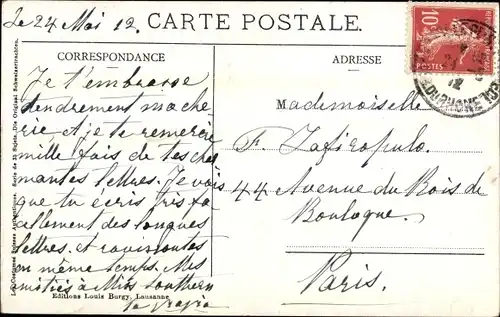 Le 24 Mai 12.
CARTE POSTALE.
CORRESPONDANCE
ADRESSE
10
POSTES
Je t'embrasse
tendrement ma che
rie et je te remercie
mille fois de tes char
mantes lettres. Je vois
que tu écris très fa
cilement des longues
lettres et ravissantes
en même temps. Mes
amitiés à Miss Southern
Mademoiselle
F. Zafiropulo.
44 Avenue du Bois de
Boulogne.
Paris.
Editions Louis Burgy, Lausanne